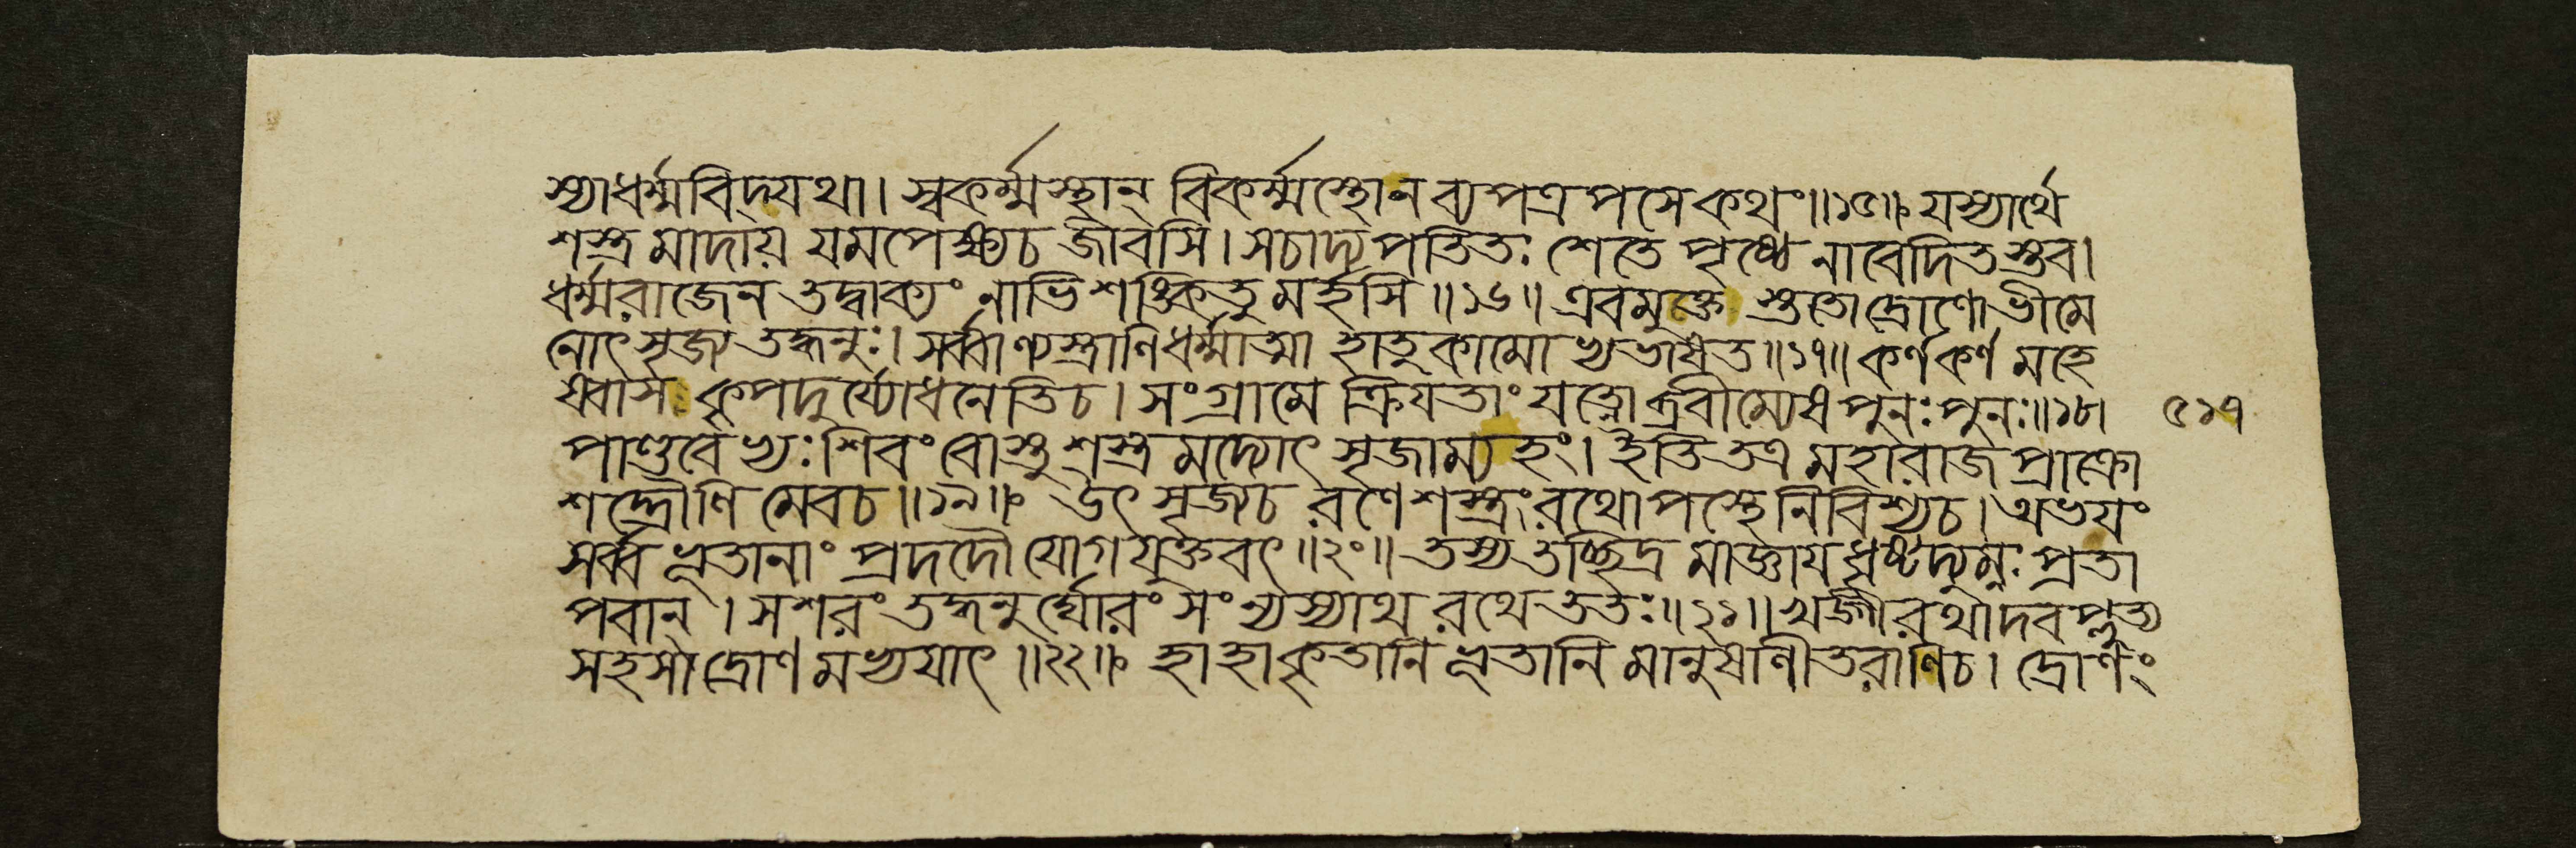 স্যাধর্ম্মবিদ্যথা। স্বকর্ম্মস্থান্ বিকর্ম্মস্থোনব্যপত্রপসেকথং॥১৫॥ যস্যার্থে
শস্ত্রমাদায় যমপেক্ষ্যচ জীবসি। সচাদ্যপতিতঃ শেতে পৃষ্ঠে নাবেদিতস্তব।
ধর্ম্মরাজেন তদ্বাক্যং নাভিশঙ্কিতুমর্হসি॥১৬॥ এবমুক্তে স্ততোদ্রোণোভীমে
নোৎসৃজ্য তদ্ধনুঃ। সর্ব্বাণ্যস্ত্রাণিধর্ম্মাত্মা হাতুকামোভ্যভাষত॥১৭॥ কর্ণকর্ণ মহে
ষ্বাস কৃপদুর্য্যোধনেতিচ। সংগ্রামে ক্রিযতাং যত্নোব্রবীম্যেষ পুনঃপুনঃ॥১৮। ৫১৭
পাণ্ডবেভ্যঃ শিবং বোস্তু শস্ত্রমদ্যোৎসৃজাম্যহং। ইতি তত্র মহারাজ প্রাক্রো
শদ্দ্রৌণিমেবচ॥১৯॥ উৎসৃজ্যচ রণেশস্ত্রং রথোপস্থেনিবিশ্যচ। অভযং
সর্ব্বভূতানাং প্রদদৌ যোগযুক্তবৎ॥২০॥ তস্য তচ্ছিদ্রমাজ্ঞায ধৃষ্টদ্যুম্নঃ প্রতা
পবান্। সশরং তদ্ধনুর্ঘোরং সংন্যস্যাথ রথে ততঃ॥২১॥ খড়্গীরথাদবপ্লুত্য
সহসা দ্রোণমভ্যযাৎ॥২২॥ হাহাকৃতানি ভূতানি মানুষাণীতরাণিচ। দ্রোণং